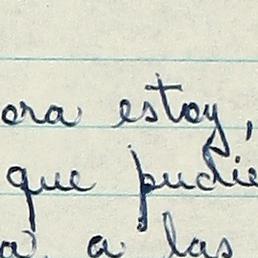 ora estoy,
que pudie
a, a las